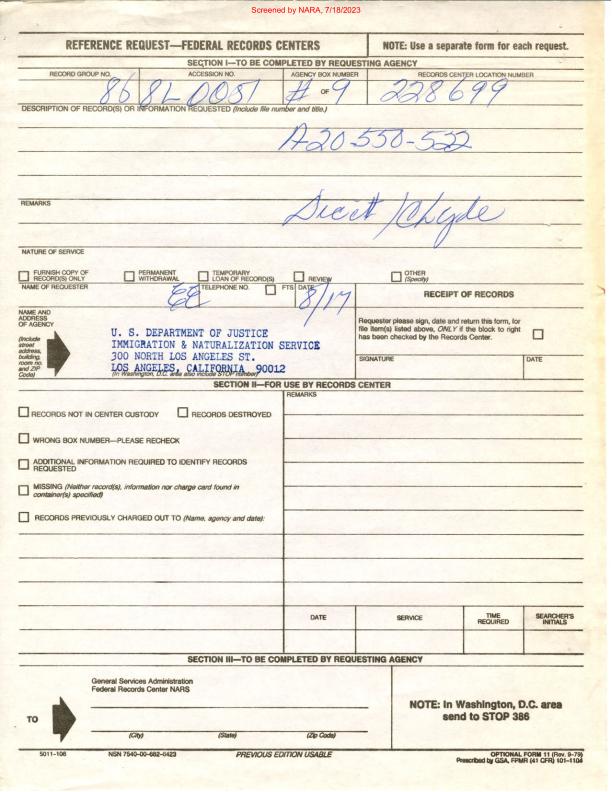 Screened by NARA, 7/18/2023
REFERENCE REQUEST—FEDERAL RECORDS CENTERS
NOTE: Use a separate form for each request.
SECTION I—TO BE COMPLETED BY REQUESTING AGENCY
RECORD GROUP NO.
ACCESSION NO.
AGENCY BOX NUMBER
RECORDS CENTER LOCATION NUMBER
86 8L 0051
# OF 9
228699
DESCRIPTION OF RECORD(S) OR INFORMATION REQUESTED (Include file number and title.)
A20-550-522
REMARKS
/Clyde
NATURE OF SERVICE
FURNISH COPY OF RECORD(S) ONLY
PERMANENT WITHDRAWAL
TEMPORARY LOAN OF RECORD(S)
REVIEW
OTHER (Specify)
NAME OF REQUESTER
TELEPHONE NO.
FTS
DATE
8/17
RECEIPT OF RECORDS
NAME AND
ADDRESS
OF AGENCY
(Include
street
address,
building,
room no.
and ZIP
Code)
U. S. DEPARTMENT OF JUSTICE
IMMIGRATION & NATURALIZATION SERVICE
300 NORTH LOS ANGELES ST.
LOS ANGELES, CALIFORNIA 90012
(In Washington, D.C. area also include STOP number)
Requester please sign, date and return this form, for
file item(s) listed above, ONLY if the block to right
has been checked by the Records Center.
SIGNATURE
DATE
SECTION II—FOR USE BY RECORDS CENTER
REMARKS
RECORDS NOT IN CENTER CUSTODY
RECORDS DESTROYED
WRONG BOX NUMBER—PLEASE RECHECK
ADDITIONAL INFORMATION REQUIRED TO IDENTIFY RECORDS
REQUESTED
MISSING (Neither record(s), information nor charge card found in
container(s) specified)
RECORDS PREVIOUSLY CHARGED OUT TO (Name, agency and date):
DATE
SERVICE
TIME
REQUIRED
SEARCHER'S
INITIALS
SECTION III—TO BE COMPLETED BY REQUESTING AGENCY
General Services Administration
Federal Records Center NARS
TO
(City)
(State)
(Zip Code)
NOTE: In Washington, D.C. area
send to STOP 386
5011-106
NSN 7540-00-682-0423
PREVIOUS EDITION USABLE
OPTIONAL FORM 11 (Rev. 9-79)
Prescribed by GSA, FPMR (41 CFR) 101-1104